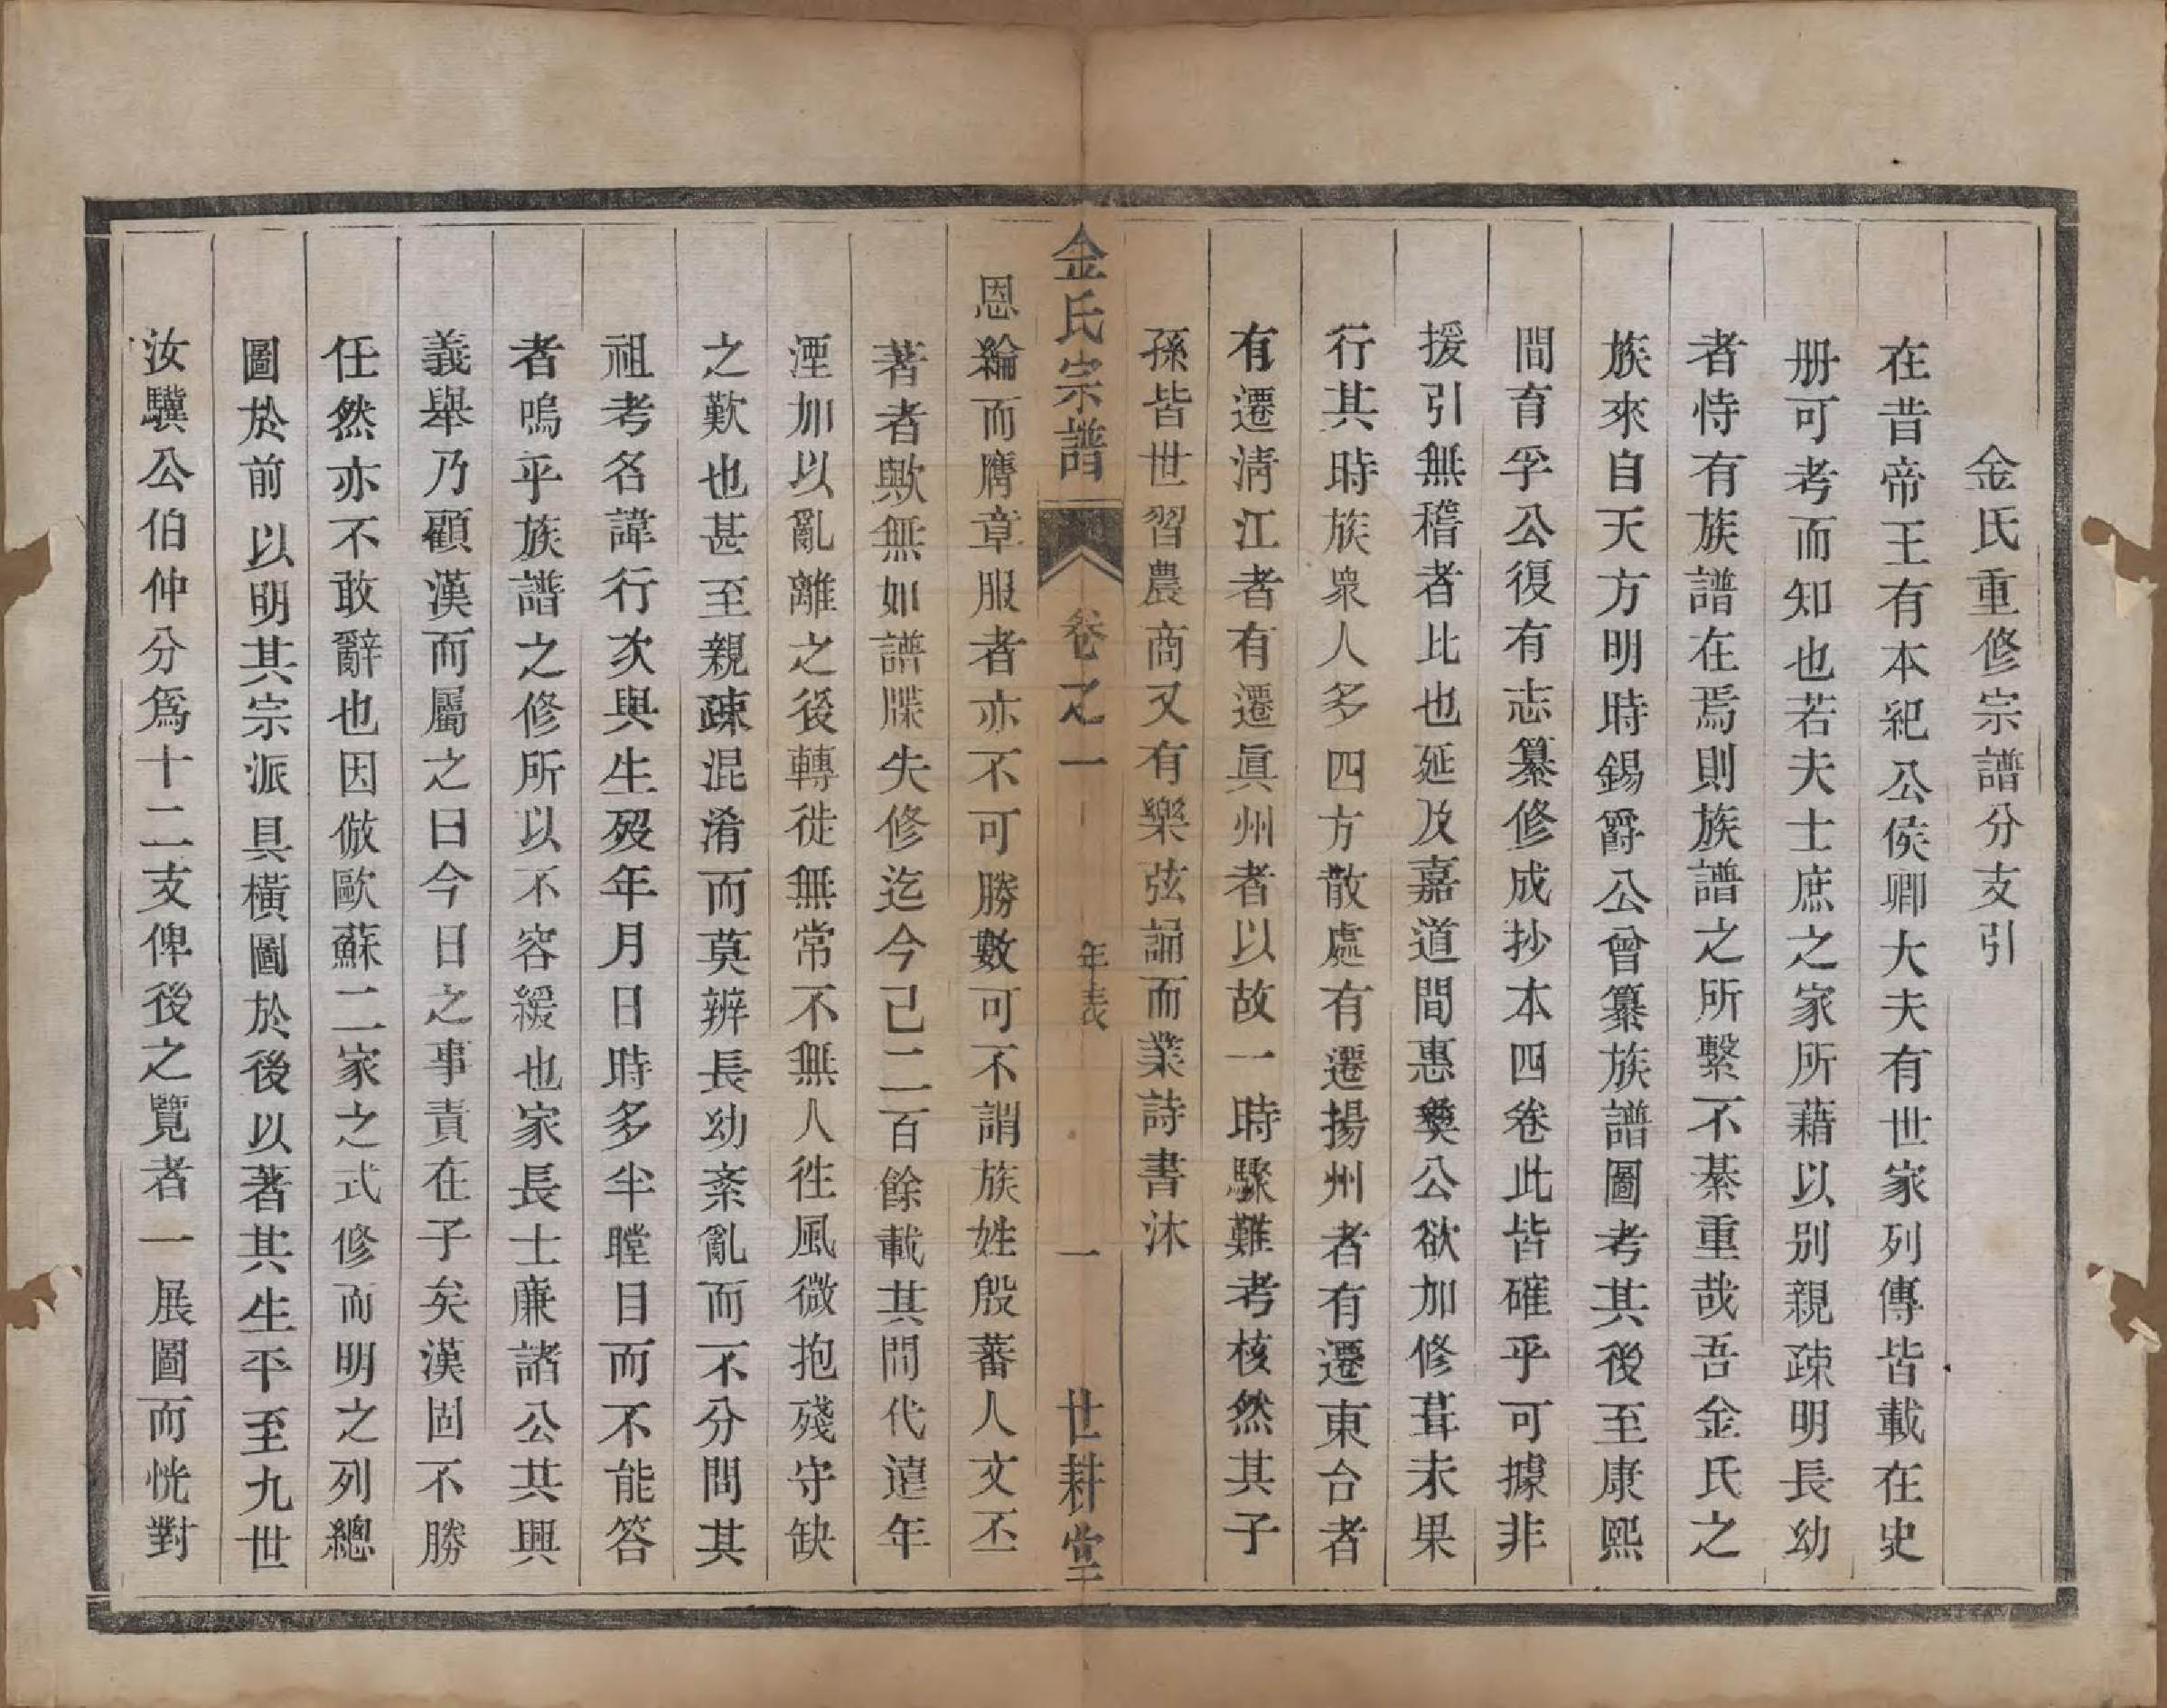 金氏重修宗譜分支引
在昔帝王有本紀公侯卿大夫有世家列傳皆載在史
册可考而知也若夫士庶之家所藉以别親疎明長幼
者恃有族譜在焉則族譜之所繫不綦重哉吾金氏之
族來自天方明時錫爵公曾纂族譜圖考其後至康熙
間育孚公復有志纂修成抄本四卷此皆確乎可據非
援引無稽者比也延及嘉道間惠奠公欲加修葺未果
行其時族衆人多四方散處有遷揚州者有遷東台者
有遷清江者有遷眞州者以故一時驟難考核然其子
孫皆世習農商又有樂弦誦而業詩書沐
金氏宗譜 卷之一 年表 一 世耕堂
恩綸而膺章服者亦不可勝數可不謂族姓殷蕃人文丕
著者歟無如譜牒失修迄今已二百餘載其間代遠年
湮加以亂離之後轉徙無常不無人徃風微抱殘守缺
之歎也甚至親疎混淆而莫辨長幼紊亂而不分問其
祖考名諱行次與生殁年月日時多半瞠目而不能答
者嗚乎族譜之修所以不容緩也家長士廉諸公共興
義舉乃顧漢而屬之曰今日之事責在子矣漢固不勝
任然亦不敢辭也因倣歐蘇二家之式修而明之列總
圖於前以明其宗派具橫圖於後以著其生平至九世
汝驥公伯仲分爲十二支俾後之覽者一展圖而恍對